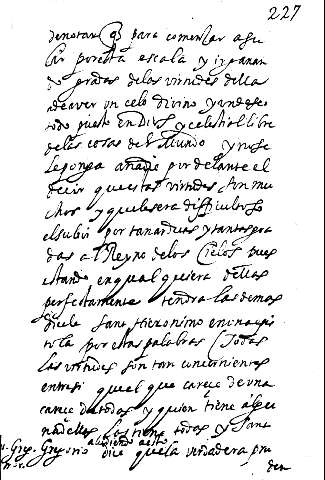 227
denotar q̃ para comenzar a su
bir por esta escala y ir ganan
do grados de las virtudes della
a de aver un celo divino y un deseo
todo puesto en Dios y celestial libre
de las cosas del Mundo y no se
le ponga a nadie por delante el
decir que estas virtudes son mu
chas y que le sera dificultoso
el subir por tan arduas y tantas gra
das al Reyno de los Cielos pues
estando en qual quiera dellas
perfectamente tendra las demas
dicelo Sant Hieronimo en una epis
tola por estas palabras (Todas
las virtudes son tan convenientes
entre si que el que careçe de una
careçe de todas y quien tiene algu
na dellas las tiene todas y Sant
S. Greg. Gregorio aludiendo a esto dice que la verdadera pru
den